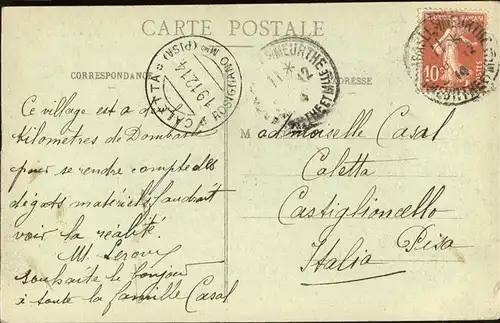 CARTE POSTALE
CORRESPONDANCE
ADRESSE
CALETTA
ROSIGNANO Mmo (PISA)
19 12 14
MEURTHE
11 *
12
10
Ce village est a deux
kilomètres de Dombasle
pour se rendre compte des
dégats matériels faudrait
voir la réalité.
M. Leroux
souhaite le bonjour
à toute la famille Casal
Mademoiselle Casal
Caletta
Castiglioncello
Pisa
Italia